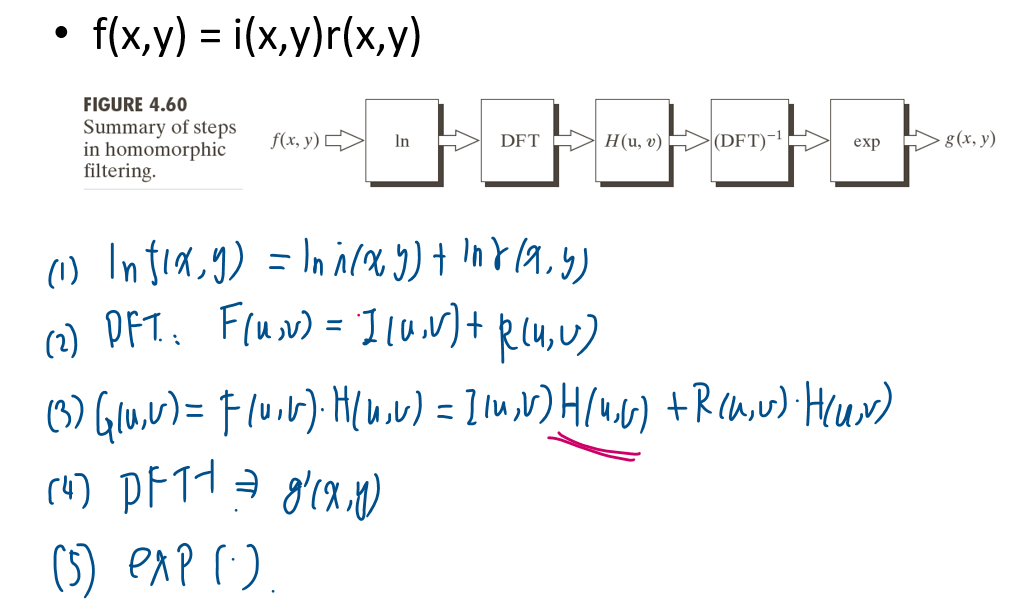 • f(x,y) = i(x,y)r(x,y)
FIGURE 4.60
Summary of steps
in homomorphic
filtering.
f(x, y) ln DFT H(u, v) (DFT)⁻¹ exp g(x, y)
(1) ln f(x,y) = ln i(x,y) + ln r(x,y)
(2) DFT: F(u,v) = I(u,v) + R(u,v)
(3) G(u,v) = F(u,v)·H(u,v) = I(u,v) H(u,v) + R(u,v)·H(u,v)
(4) DFT⁻¹ ⇒ g'(x,y)
(5) exp(·).